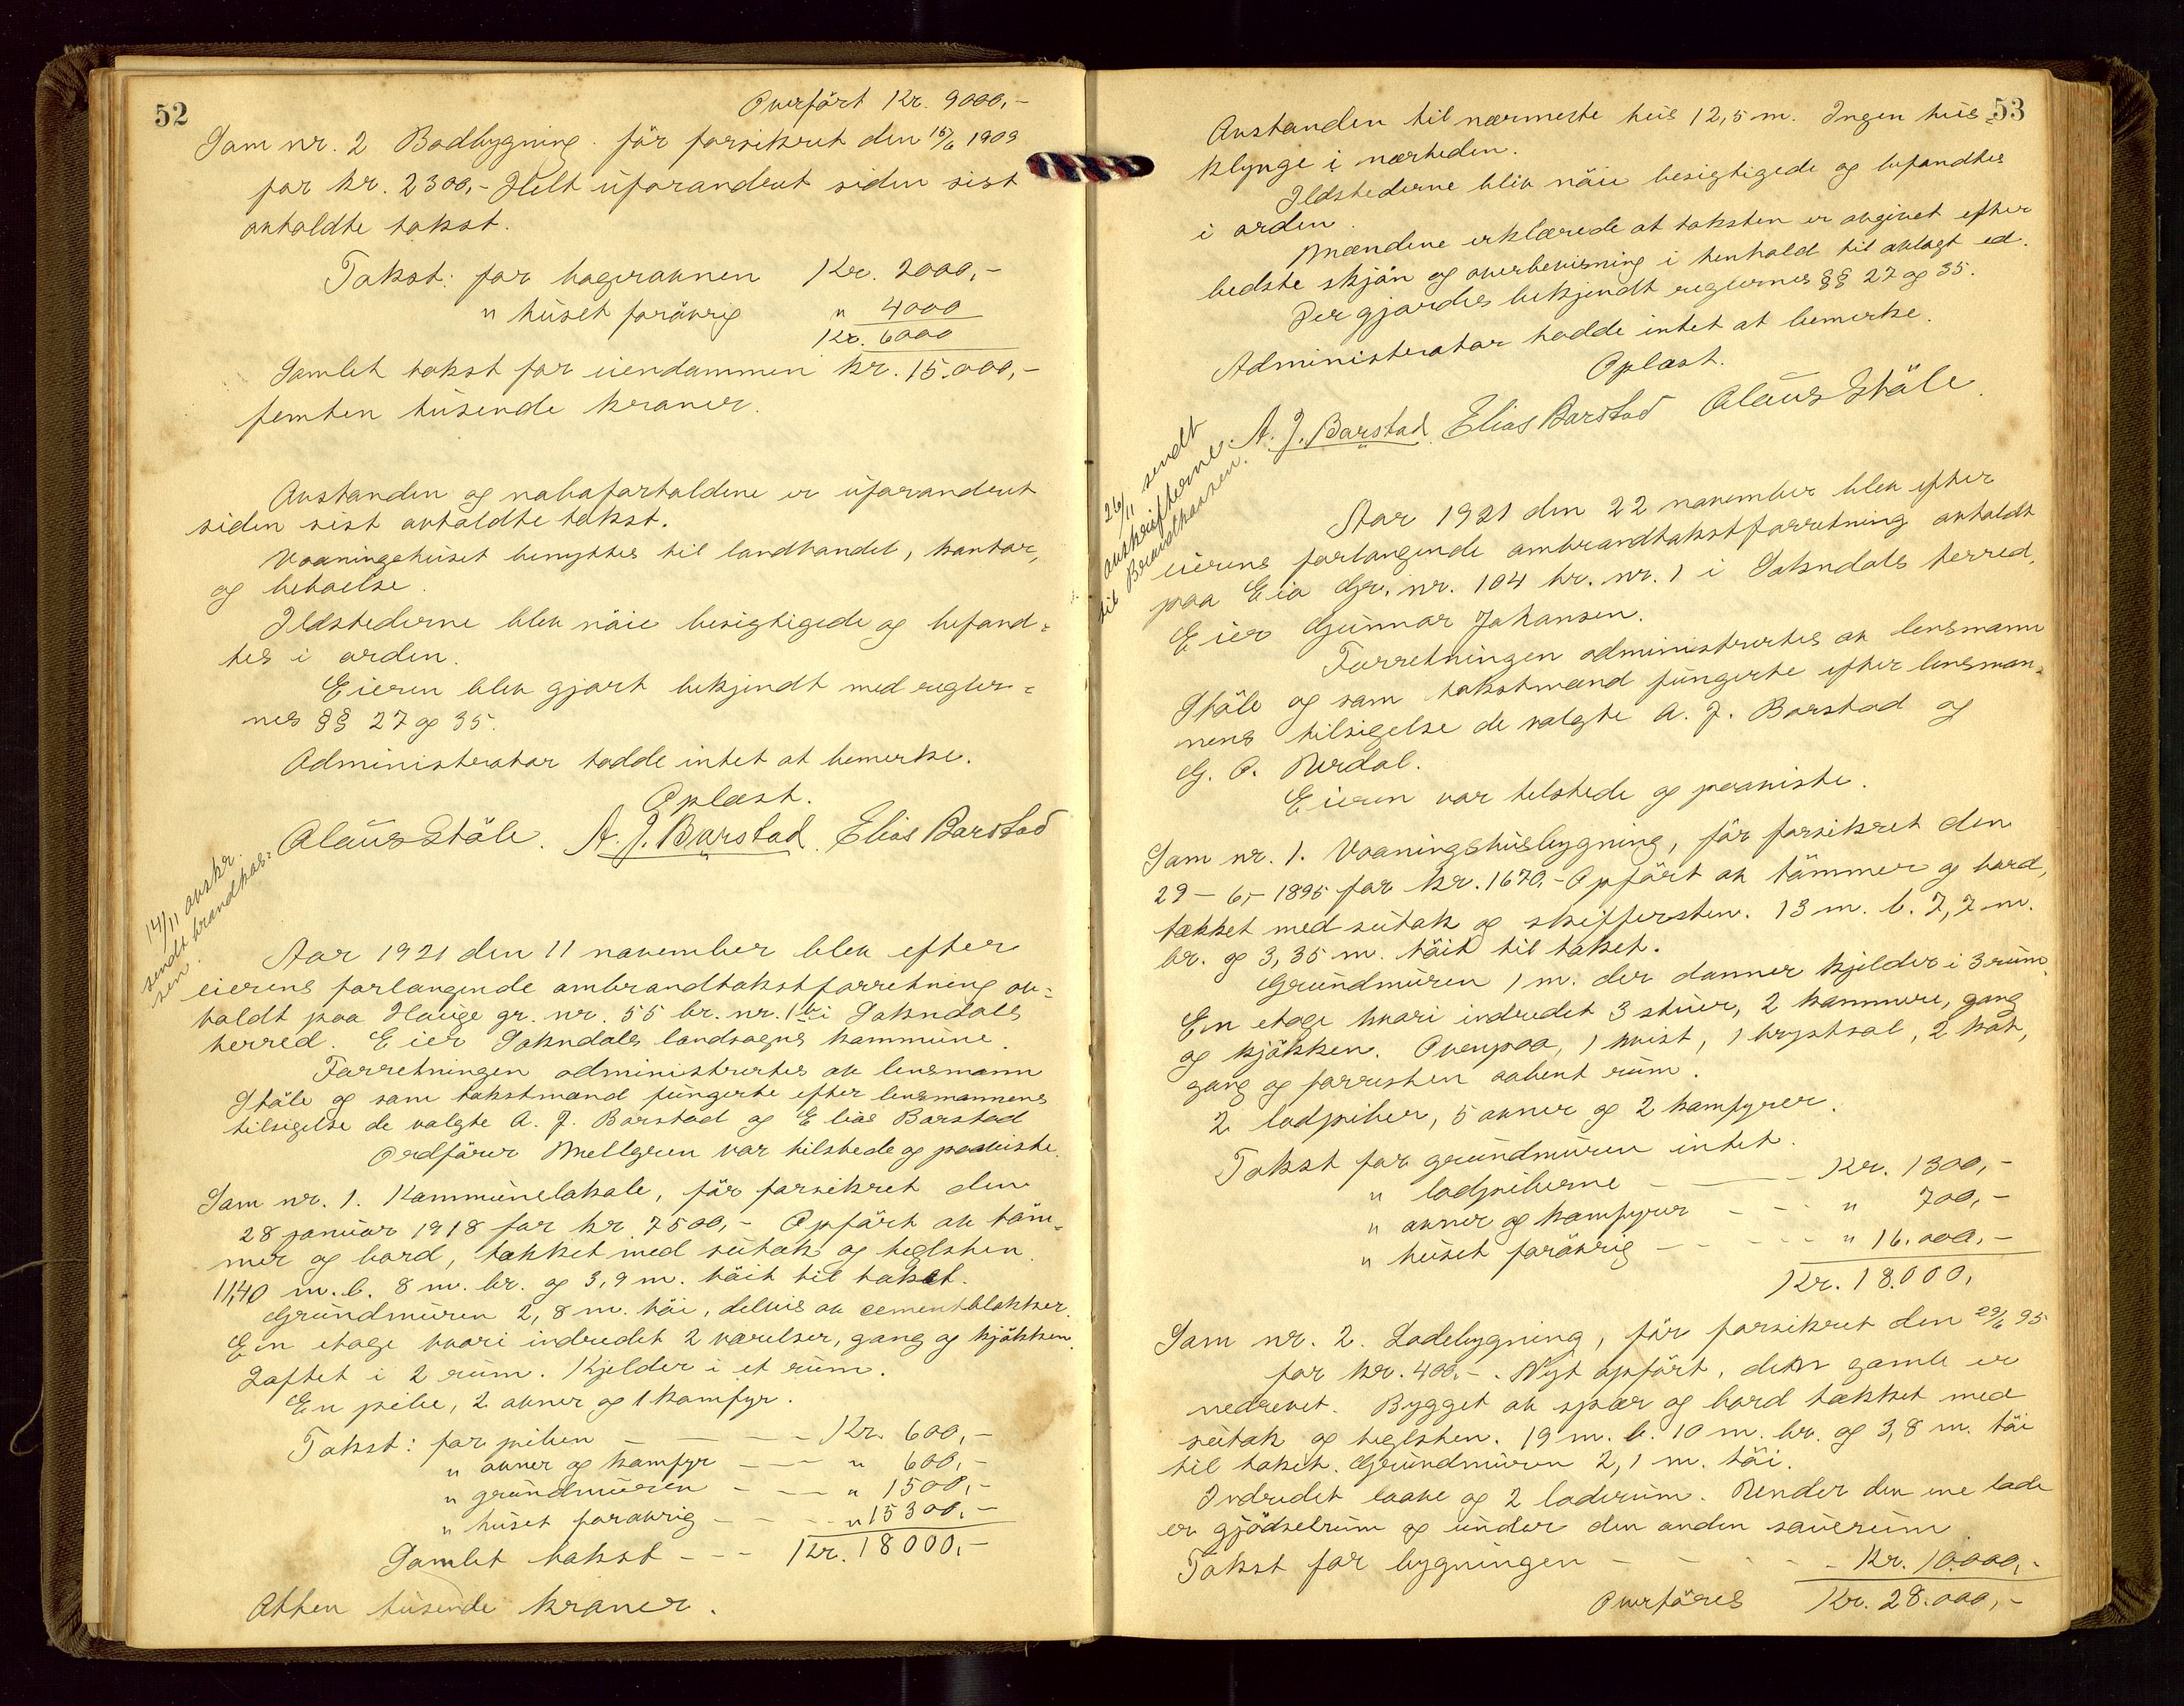 52
Overført Kr. 9000,-
Som nr. 2 Badbygning. før forsikret den 15/6 1909
for kr. 2300,- Helt uforandret siden sist
avholdte takst.
Takst: for bagerovnen Kr. 2000,-
" huset forøvrig " 4000
Kr. 6000
Samlet takst for eiendommen kr. 15.000,-
femten tusende kroner.
Avstanden og naboforholdene er uforandret
siden sist avholdte takst.
Vaaningshuset benyttes til landhandel, kontor,
og beboelse.
Ildstederne blev nøie besigtigede og befand=
tes i orden.
Eieren blev gjort bekjendt med regler=
nes §§ 27 og 35.
Administrator hadde intet at bemerke.
Oplæst.
Olaus Ståle. A. J. Barstad. Elias Barstad
14/11 avskr.
sendt brandkas=
sen.
Aar 1921 den 11 november blev efter
eierens forlangende ombrandtakstforretning av=
holdt paa Hauge gr. nr. 55 br. nr. 1 b i Sokndals
herred. Eier Sokndals landsogns kommune.
Forretningen administrertes av lensmann
Ståle og som takstmænd fungerte efter lensmannens
tilsigelse de valgte A. J. Barstad og Elias Barstad
Ordfører Mellgren var tilstede og paaviste.
Som nr. 1. Kommunelokale, før forsikret den
28 januar 1918 for kr. 7500,- Opført av tøm=
mer og bord, tækket med sutak og teglsten.
11,40 m. l. 8 m. br. og 3,9 m. høit til taket.
Grundmuren 2,8 m. høi, delvis av cementblokker.
En etage hvori indredet 2 værelser, gang og kjøkken.
Loftet i 2 rum. Kjelder i et rum.
En pibe, 2 ovner og 1 komfyr.
Takst: for piben - - - Kr. 600,-
" ovner og komfyr - - " 600,-
" grundmuren - - - " 1500,-
" huset forøvrig - - - " 15300,-
Samlet takst - - - Kr. 18000,-
Atten tusende kroner.
53
Avstanden til nærmeste hus 12,5 m. Ingen hus=
klynge i nærheden.
Ildstederne blev nøie besigtigede og befandtes
i orden.
Mændene erklærede at taksten er avgivet efter
bedste skjøn og overbevisning i henhold til avlagt ed.
Der gjordes bekjendt reglernes §§ 27 og 35.
Administrator hadde intet at bemerke.
Oplæst.
A. J. Barstad. Elias Barstad Olaus Ståle.
26/11 sendt
avskrifterne
til Brandkassen.
Aar 1921 den 22 november blev efter
eierens forlangende ombrandtakstforretning avholdt
paa Eia Gr. nr. 104 br. nr. 1 i Sokndals herred.
Eier Gunnar Johansen.
Forretningen administrertes av lensmann
Ståle og som takstmænd fungerte efter lensman=
nens tilsigelse de valgte A. J. Barstad og
G. O. Nerdal.
Eieren var tilstede og paaviste.
Som nr. 1. Vaaningshusbygning, før forsikret den
29-6,-1895 for kr. 1670,- Opført av tømmer og bord,
tækket med sutak og skiffersten. 13 m. l. 7,7 m.
br. og 3,35 m. høit til taket.
Grundmuren 1 m. der danner kjelder i 3 rum.
En etage hvori indredet 3 stuer, 2 kammere, gang
og kjøkken. Ovenpaa, 1 kvist, 1 brystval, 2 kot,
gang og forresten aabent rum.
2 lodpiber, 5 ovner og 2 komfyrer.
Takst for grundmuren intet.
" lodpiberne - - Kr. 1300,-
" ovner og komfyrer - - - " 700,-
" huset forøvrig - - - - " 16.000,-
Kr. 18.000,
Som nr. 2. Ladebygning, før forsikret den 29/6 95
for kr. 400,-. Nyt opført, den gamle er
nedrevet. Bygget av spær og bord tækket med
sutak og teglsten. 19 m. l. 10 m. br. og 3,8 m. høi
til taket. Grundmuren 2,1 m. høi.
Indredet laave og 2 laderum. Under den ene lade
er gjødselrum og under den anden sauerum.
Takst for bygningen - - - - Kr. 10.000,-
Overføres Kr. 28.000,-